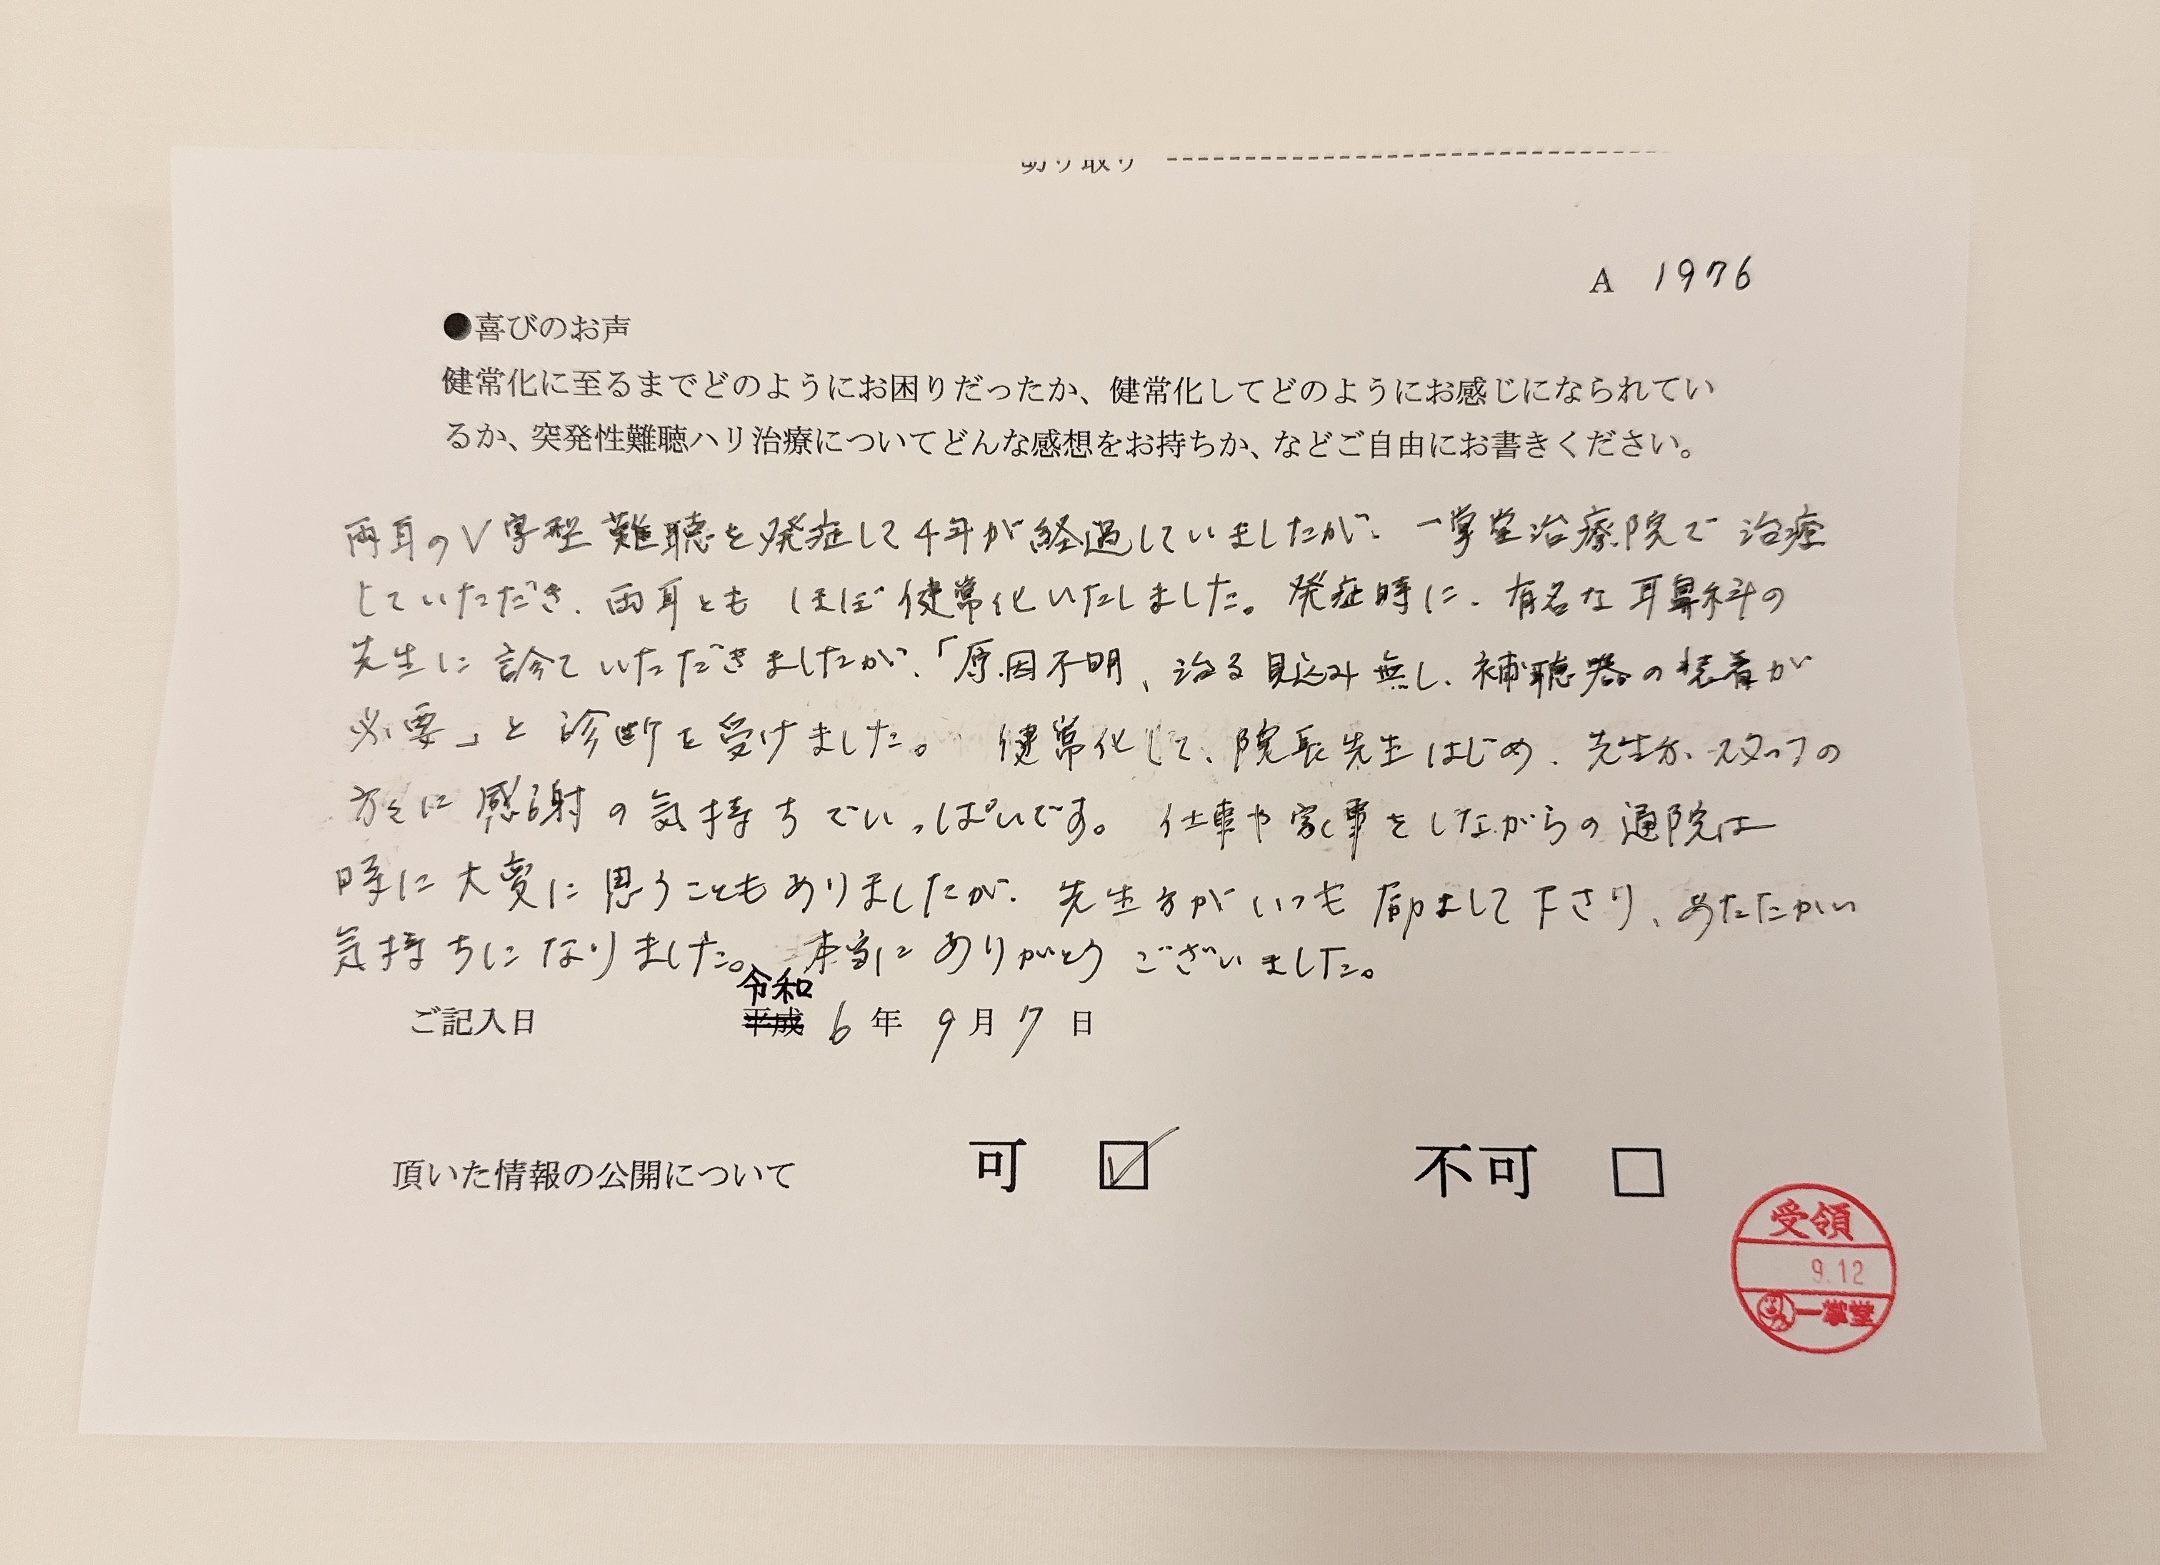 切り取り
A 1976
●喜びのお声
健常化に至るまでどのようにお困りだったか、健常化してどのようにお感じになられてい
るか、突発性難聴ハリ治療についてどんな感想をお持ちか、などご自由にお書きください。
両耳のV字型難聴を発症して4年が経過していましたが、一掌堂治療院で治療
していただき、両耳とも ほぼ健常化いたしました。発症時に、有名な耳鼻科の
先生に診ていただきましたが、「原因不明、治る見込み無し、補聴器の装着が
必要」と診断を受けました。健常化して、院長先生はじめ、先生方、スタッフの
方々に感謝の気持ちでいっぱいです。仕事や家事をしながらの通院は
時に大変に思うこともありましたが、先生方がいつも励まして下さり、あたたかい
気持ちになりました。本当にありがとうございました。
令和
ご記入日 平成 6年 9月7日
頂いた情報の公開について 可 ☑ 不可 □
受領
9.12
一掌堂